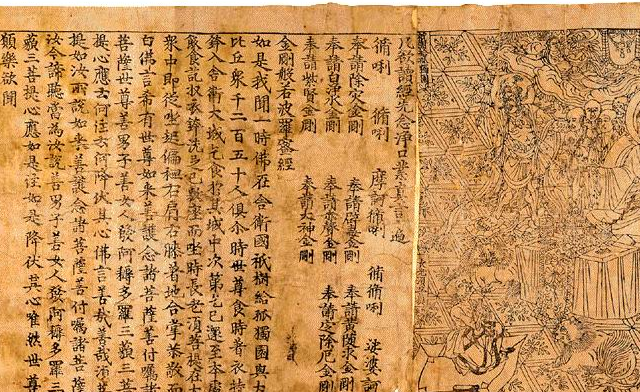 凡欲讀經先念淨口業真言一遍
脩唎 脩唎 摩訶脩唎 脩脩唎 娑婆訶
奉請除灾金剛 奉請辟毒金剛 奉請黃隨求金剛
奉請白淨水金剛 奉請赤聲金剛 奉請定除厄金剛
奉請紫賢金剛 奉請大神金剛
金剛般若波羅蜜經
如是我聞一時佛在舍衛國祇樹給孤獨園與大
比丘衆千二百五十人俱尒時世尊食時著衣持
鉢入舍衛大城乞食於其城中次第乞已還至本處
飯食訖收衣鉢洗足已敷座而坐時長老須菩提在大
衆中即從座起偏袒右肩右膝著地合掌恭敬而
白佛言希有世尊如來善護念諸菩薩善付囑諸
菩薩世尊善男子善女人發阿耨多羅三藐三菩
提心應云何住云何降伏其心佛言善哉善哉須菩
提如汝所說如來善護念諸菩薩善付囑諸菩薩
汝今諦聽當為汝說善男子善女人發阿耨多羅三
藐三菩提心應如是住如是降伏其心唯然世尊
願樂欲聞